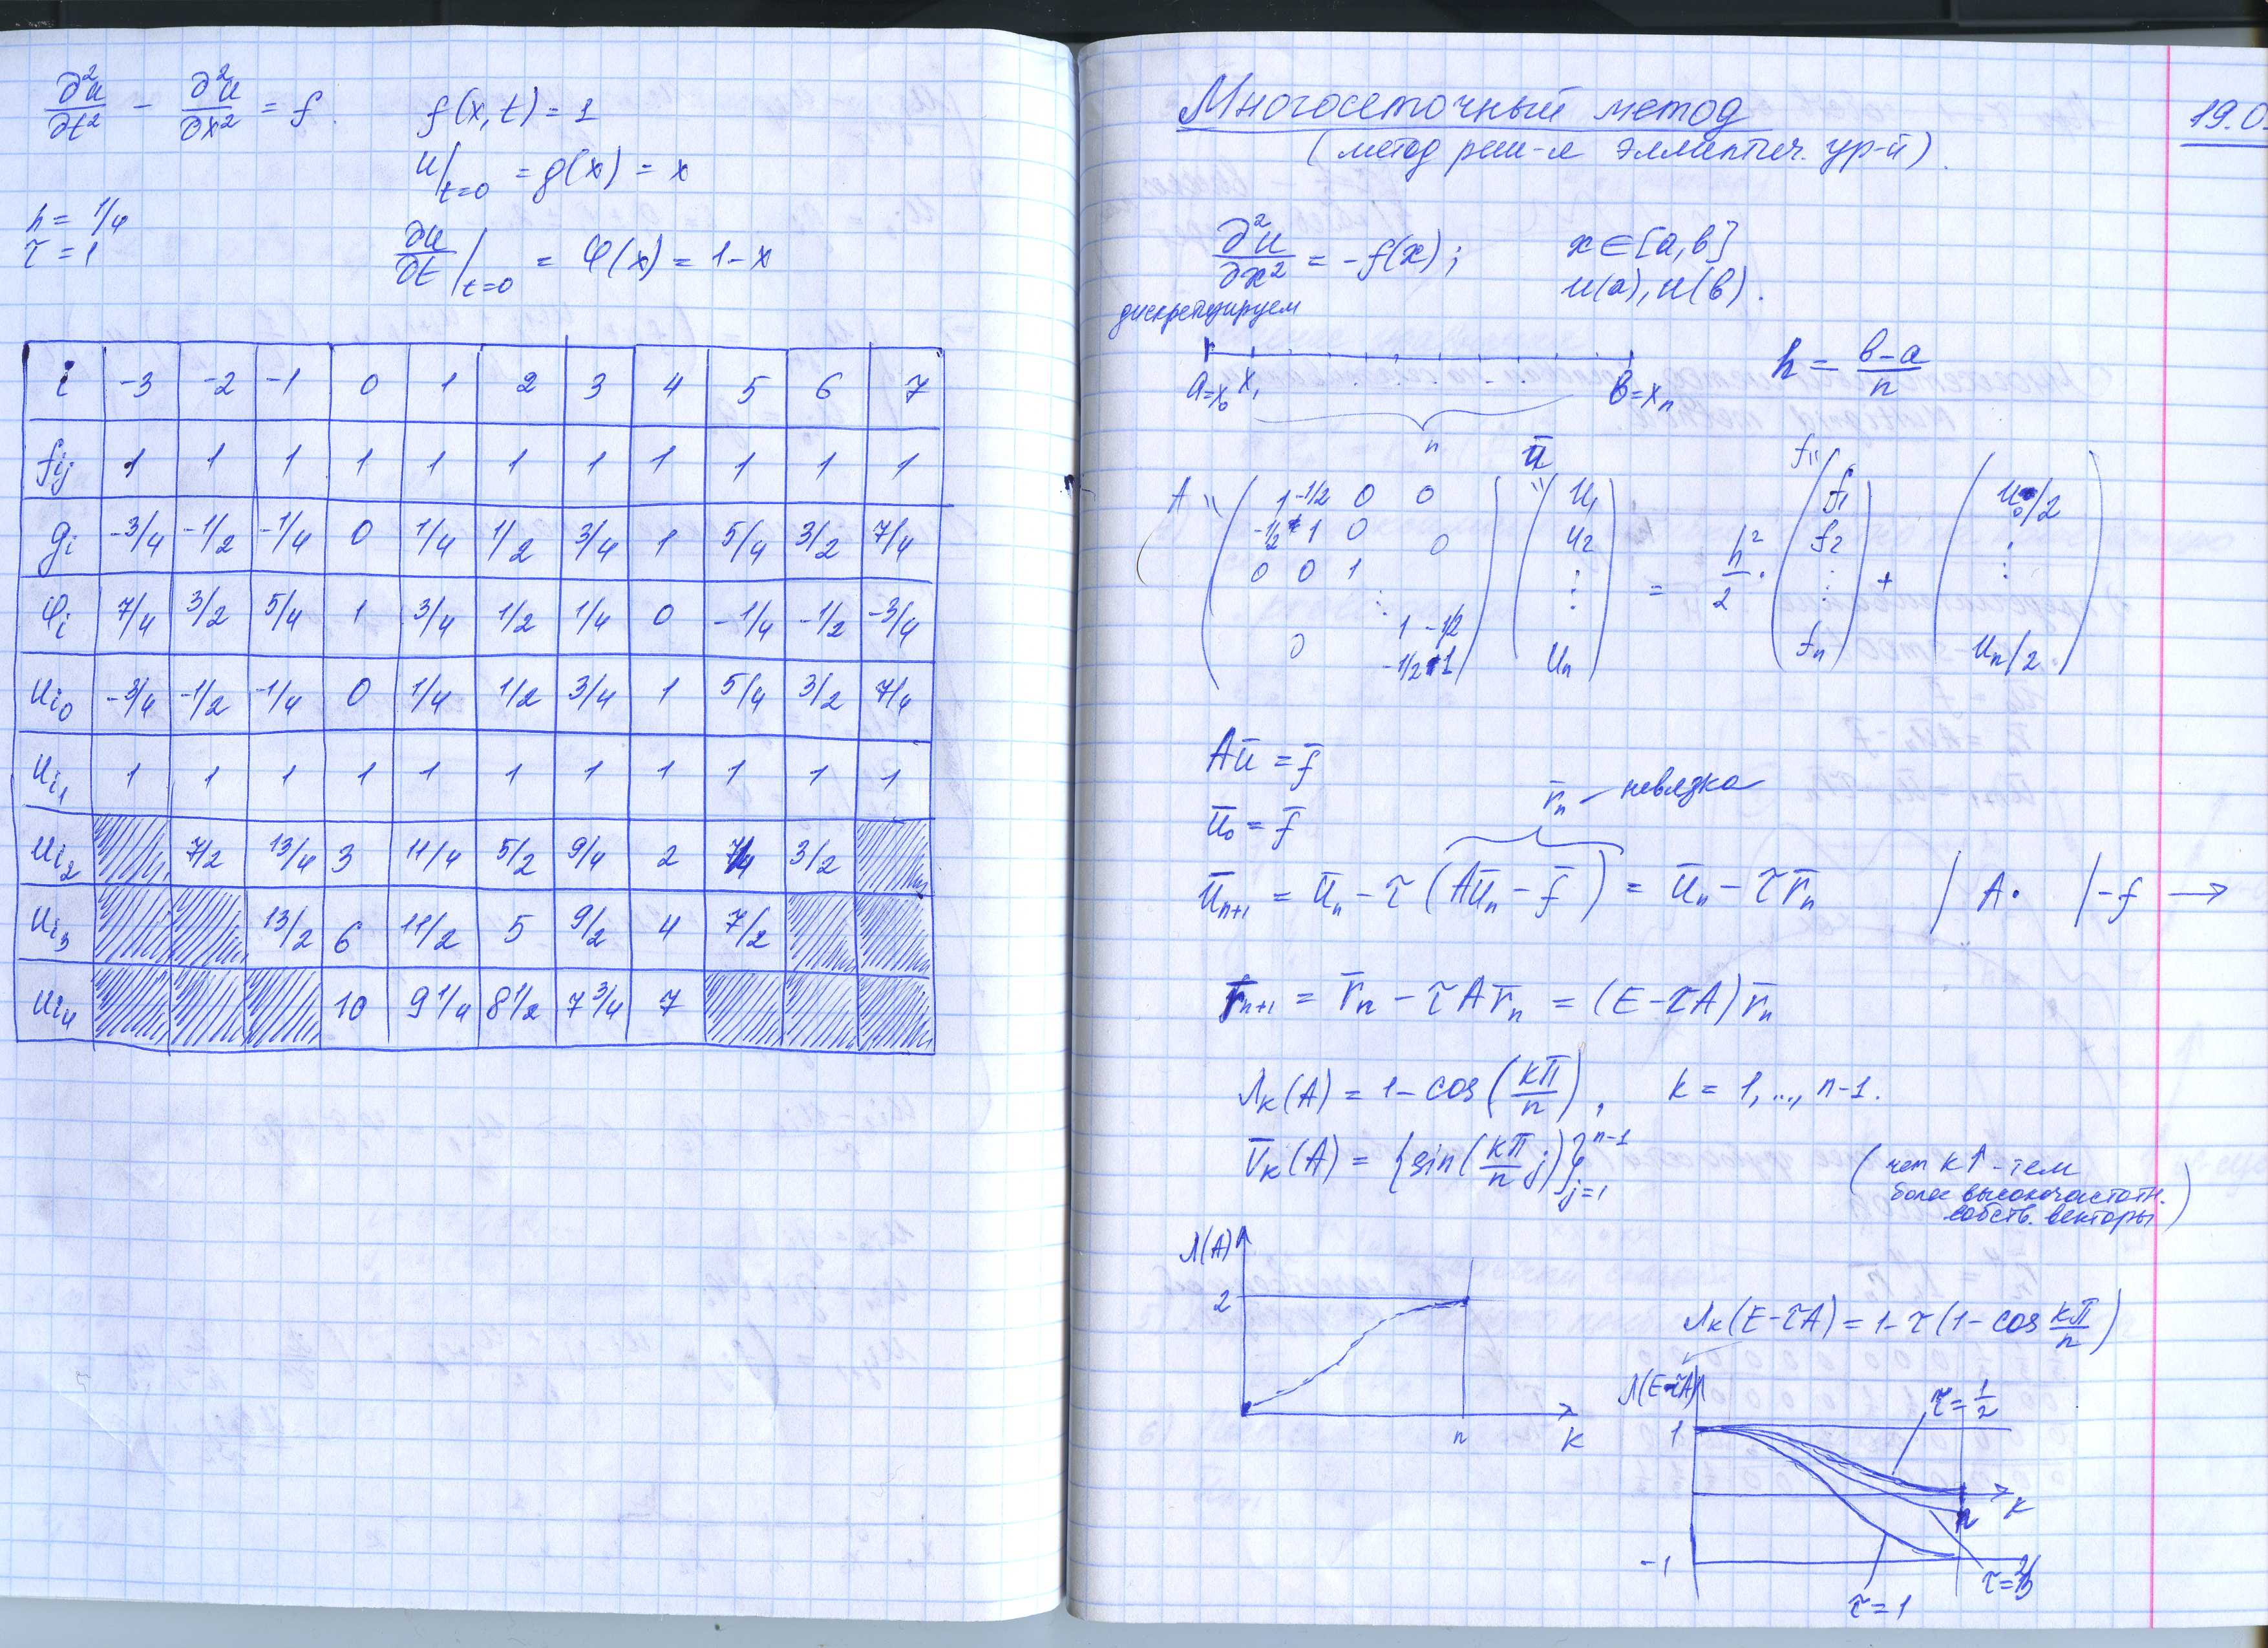 ∂²u/∂t² − ∂²u/∂x² = f. f(x,t) = 1
u|t=0 = g(x) = x
h = 1/4
τ = 1
∂u/∂t|t=0 = φ(x) = 1−x
i −3 −2 −1 0 1 2 3 4 5 6 7
fij 1 1 1 1 1 1 1 1 1 1 1
gi −3/4 −1/2 −1/4 0 1/4 1/2 3/4 1 5/4 3/2 7/4
φi 7/4 3/2 5/4 1 3/4 1/2 1/4 0 −1/4 −1/2 −3/4
ui0 −3/4 −1/2 −1/4 0 1/4 1/2 3/4 1 5/4 3/2 7/4
ui1 1 1 1 1 1 1 1 1 1 1 1
ui2 7/2 13/4 3 11/4 5/2 9/4 2 7/4 3/2
ui3 13/2 6 11/2 5 9/2 4 7/2
ui4 10 9 1/4 8 1/2 7 3/4 7
Многосеточный метод
19.0
(метод реш-я эллиптич. ур-й).
∂²u/∂x² = −f(x); x∈[a,в]
u(a), u(в).
дискретизируем
h = в−a/n
a=x₀ x₁ . . . . . в=xₙ
n
A ū f
1 −1/2 0 0 u₁ f₁ u₀/2
−1/2 1 0 0 u₂ f₂ ⋮
0 0 1 ⋮ = h²/2 · ⋮ + ⋮
0 1 −1/2
−1/2 1 uₙ fₙ uₙ/2
Aū = f̄
r̄ₙ – невязка
ū₀ = f̄
ūₙ₊₁ = ūₙ − τ(Aūₙ − f̄) = ūₙ − τr̄ₙ | A· |−f →
r̄ₙ₊₁ = r̄ₙ − τAr̄ₙ = (E−τA)r̄ₙ
λₖ(A) = 1 − cos(kπ/n), k = 1,..., n−1.
v̄ₖ(A) = {sin(kπ/n j)}ⁿ⁻¹ⱼ₌₁
(чем k↑ - тем
более высокочастотн.
собств. векторы)
λ(A)
2
n k
λₖ(E−τA) = 1−τ(1−cos kπ/n)
λ(E−τA)
τ=1/2
1
k
n
−1
τ=2/3
τ=1